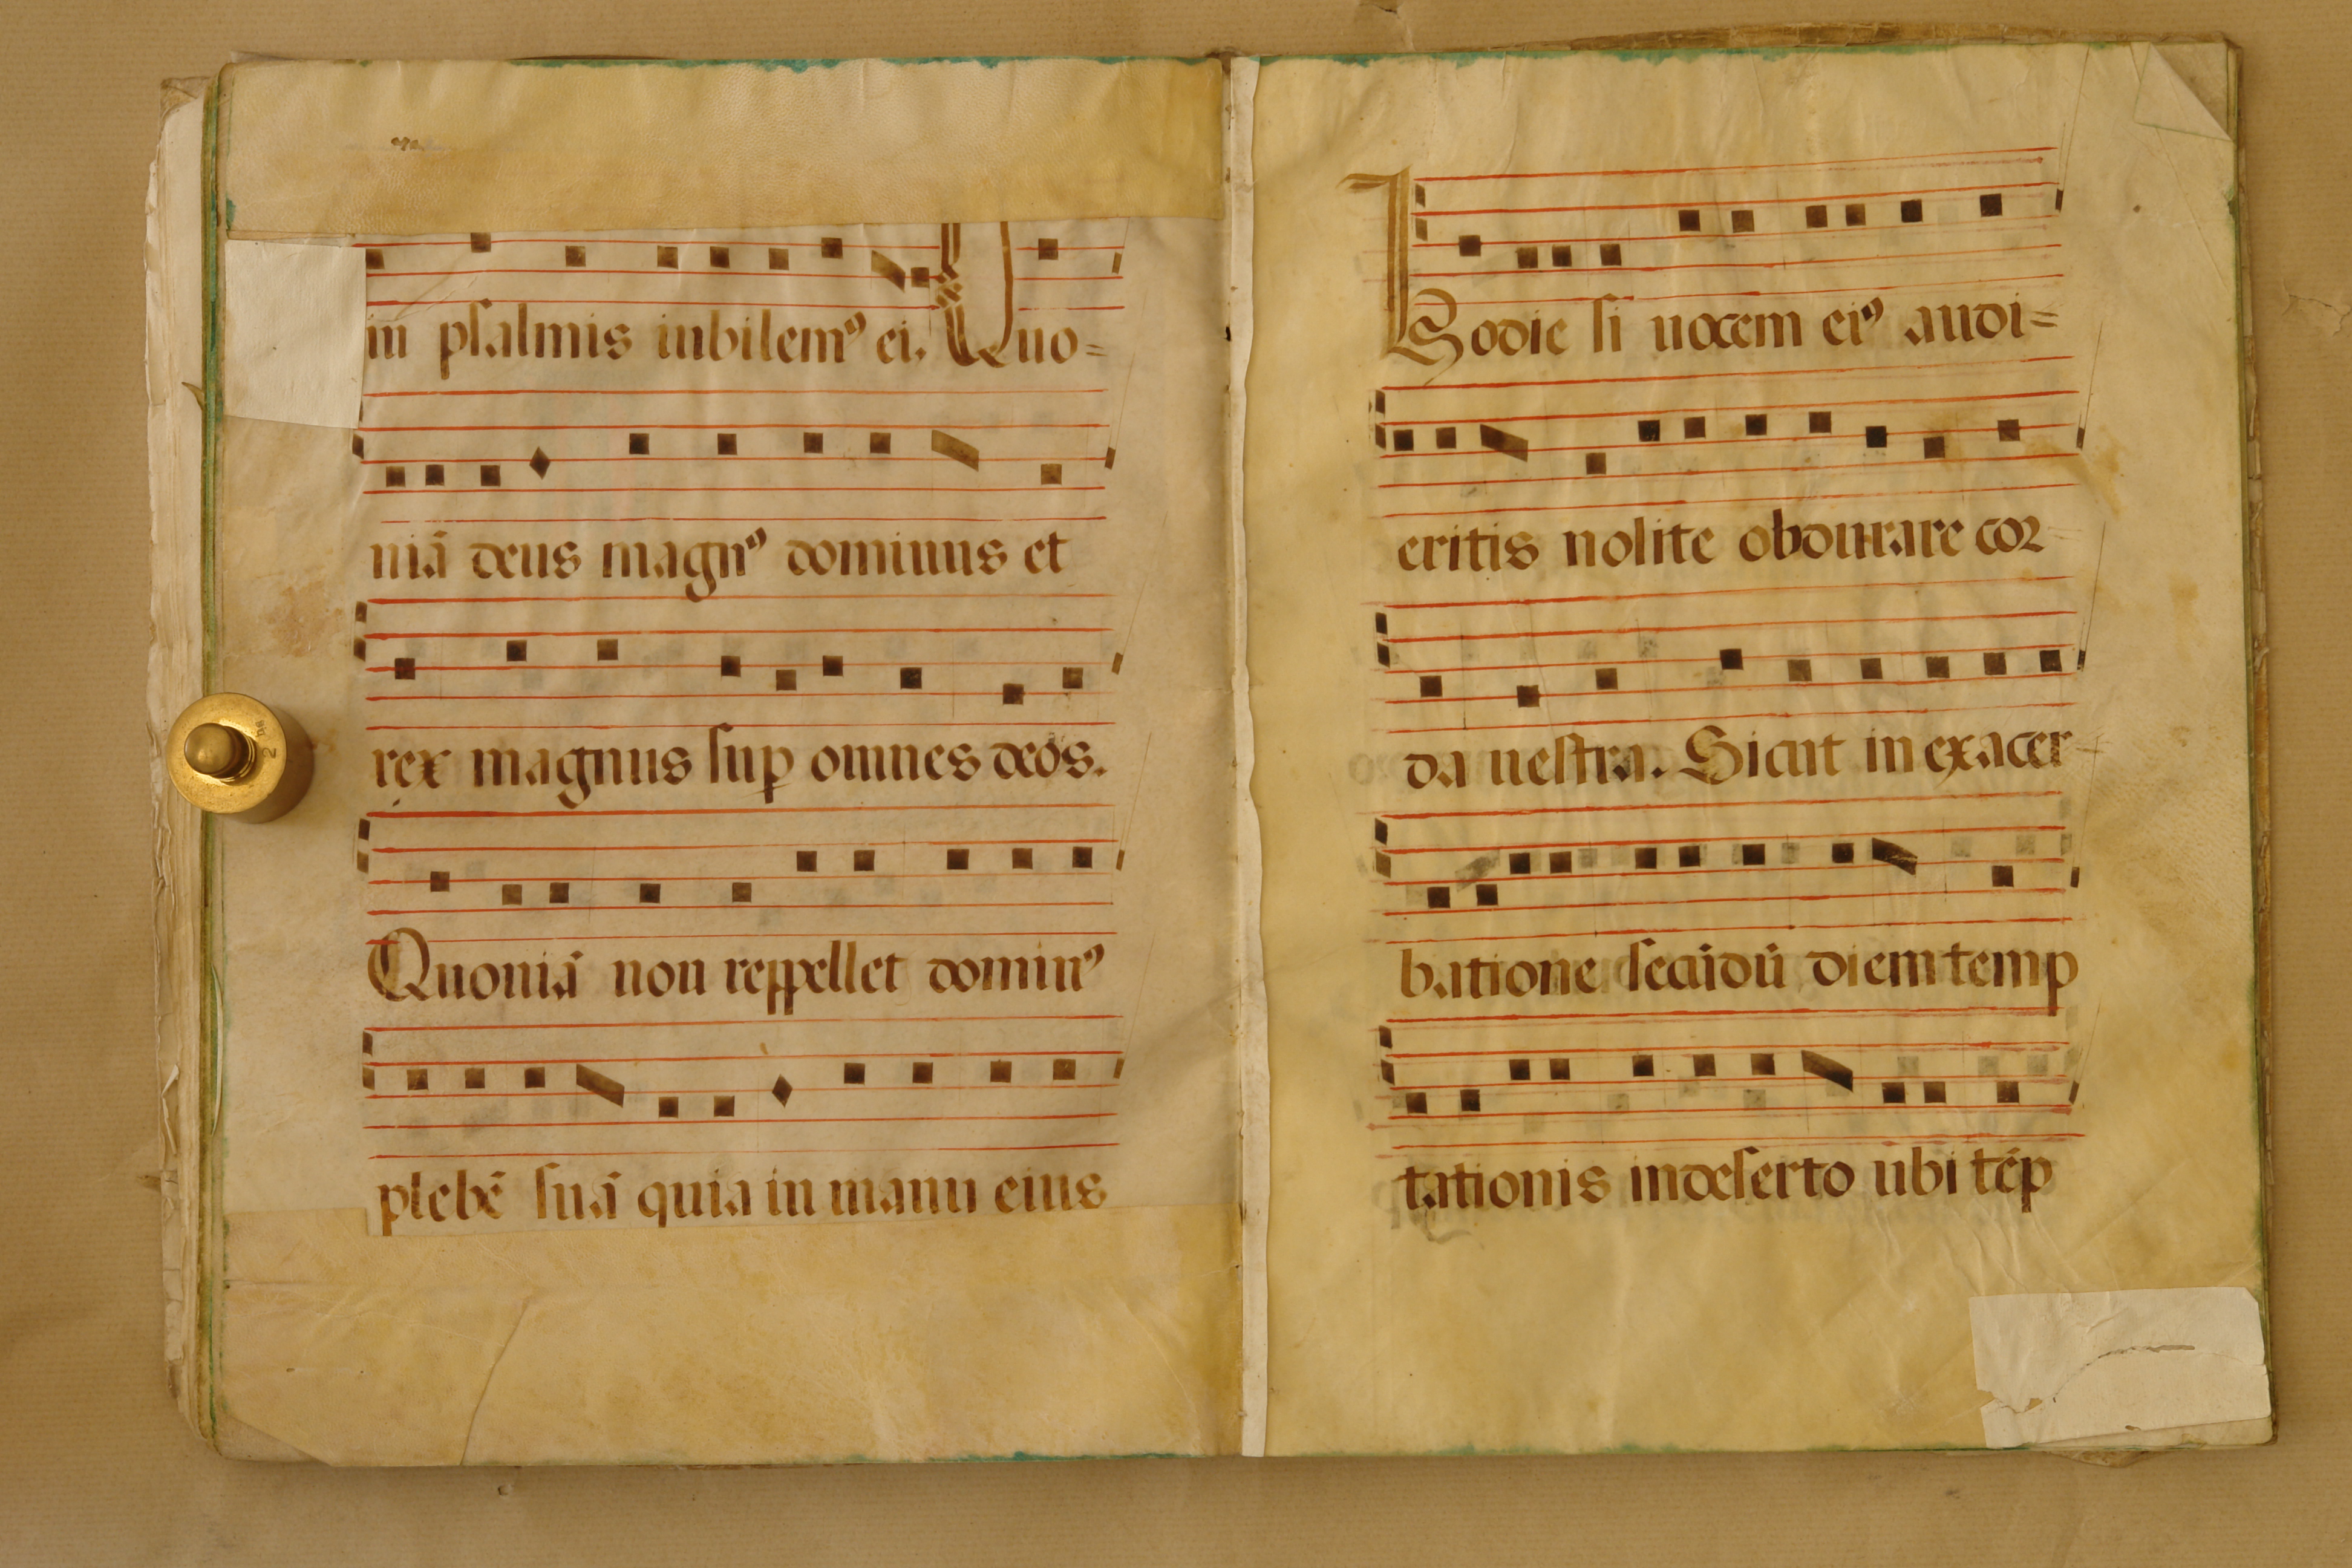 in psalmis iubilemꝰ ei. Quo=
niā deus magnꝰ dominus et
rex magnus suꝑ omnes deos.
Quoniā non reppellet dominꝰ
plebē suā quia in manu eius
Hodie si uocem eiꝰ audi=
eritis nolite obdurare cor
da uestra. Sicut in exacer-
batione secūdū diem temp
tationis in deserto ubi tēp